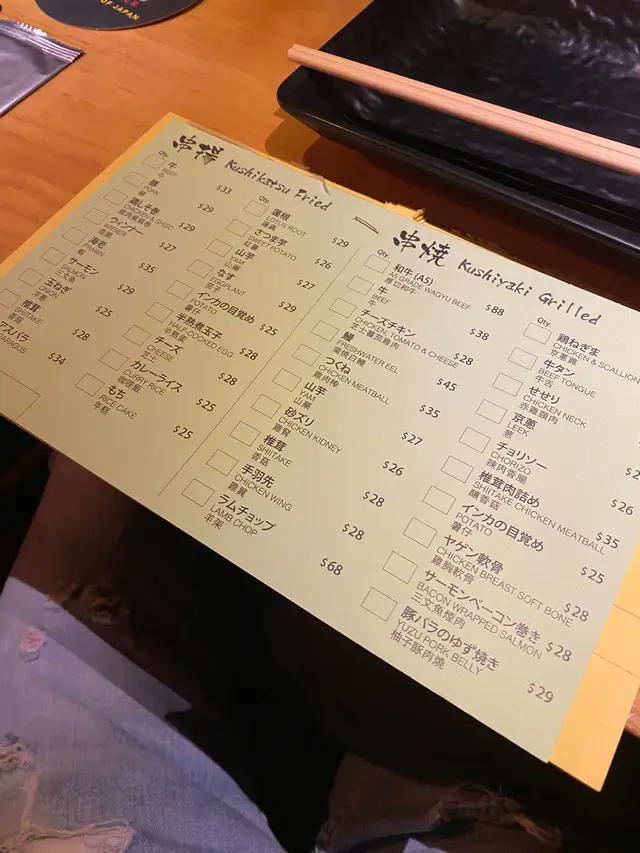 OF JAPAN
串揚 Kushikatsu Fried
Qty.
牛
BEEF
牛
$33
豚
PORK
豬
$29
鶏しそ巻
CHICKEN & SHISO
雞肉紫蘇卷
$29
ウィンナー
WIENER
香腸
$27
海老
PRAWN
蝦
$35
サーモン
SALMON
三文魚
$29
玉ねぎ
ONION
洋蔥
$25
椎茸
SHIITAKE
香菇
$28
アスパラ
ARAGUS
$34
Qty.
蓮根
LOTUS ROOT
蓮藕
$29
さつま芋
SWEET POTATO
紅薯
$26
山芋
YAM
山藥
$27
なす
EGGPLANT
茄子
$29
インカの目覚め
POTATO
薯仔
$25
半熟煮玉子
HALF-COOKED EGG
半熟蛋
$28
チーズ
CHEESE
芝士
$28
カレーライス
CURRY RICE
咖喱飯
$25
もち
RICE CAKE
年糕
$25
串焼 Kushiyaki Grilled
Qty.
和牛(A5)
A5 GRADE WAGYU BEEF
厚切和牛
$88
牛
BEEF
牛
$38
チーズチキン
CHICKEN, TOMATO & CHEESE
芝士蕃茄雞肉
$28
鰻
FRESHWATER EEL
蒲燒白鱔
$45
つくね
CHICKEN MEATBALL
雞肉棒
$35
山芋
YAM
山藥
$27
砂ズリ
CHICKEN KIDNEY
雞腎
$26
椎茸
SHIITAKE
香菇
$28
手羽先
CHICKEN WING
雞翼
$28
ラムチョップ
LAMB CHOP
羊架
$68
Qty.
鶏ねぎま
CHICKEN & SCALLION
京蔥雞
牛タン
BEEF TONGUE
牛舌
せせり
CHICKEN NECK
赤雞頸肉
京葱
LEEK
葱
チョリソー
CHORIZO
辣肉香腸
$26
椎茸肉詰め
SHIITAKE CHICKEN MEATBALL
釀香菇
$35
インカの目覚め
POTATO
薯仔
$25
ヤゲン軟骨
CHICKEN BREAST SOFT BONE
雞胸軟骨
$28
サーモンベーコン巻き
BACON WRAPPED SALMON
三文魚煙肉
$28
豚バラのゆず焼き
YUZU PORK BELLY
柚子豚肉燒
$29